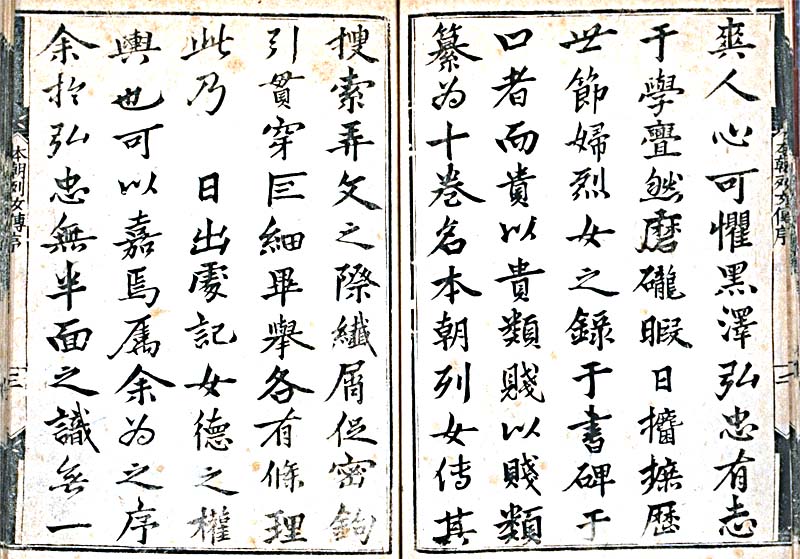 本朝列女傳序 二
爽人心可懼黑澤弘忠有志
于學亹然磨礲暇日攟摭歷
世節婦烈女之錄于書碑于
口者而貴以貴類賤以賤類
纂為十卷名本朝列女傳其
搜索弄文之際纖屑促密鉤
引貫穿巨細畢舉各有條理
此乃 日出處記女德之權
輿也可以嘉焉属余為之序
余於弘忠無半面之識無一
本朝列女傳序 三